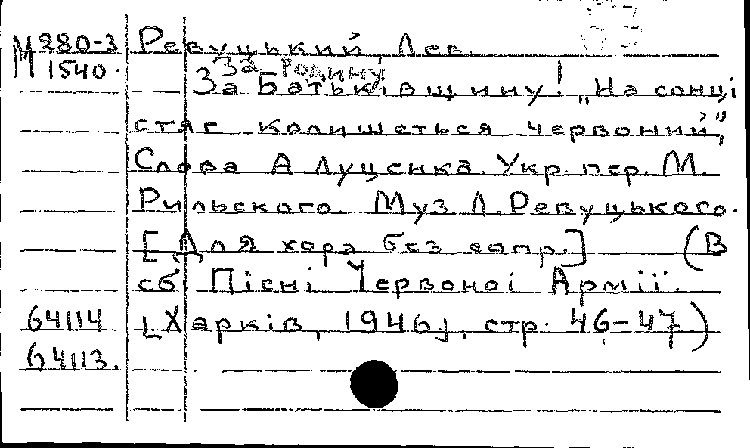 М 280-3 Ревуцький, Лев.
М 1540. За родину
За Батьківщину! „На сонці
стяг колишеться червоний",
Слова А Луценка. Укр. пер. М.
Рильского. Муз Л. Ревуцького.
[Для хора без сопр.] (В
сб. Пісні Червоної Армії.
64114 [Харків, 1946], стр. 46-47)
64113.